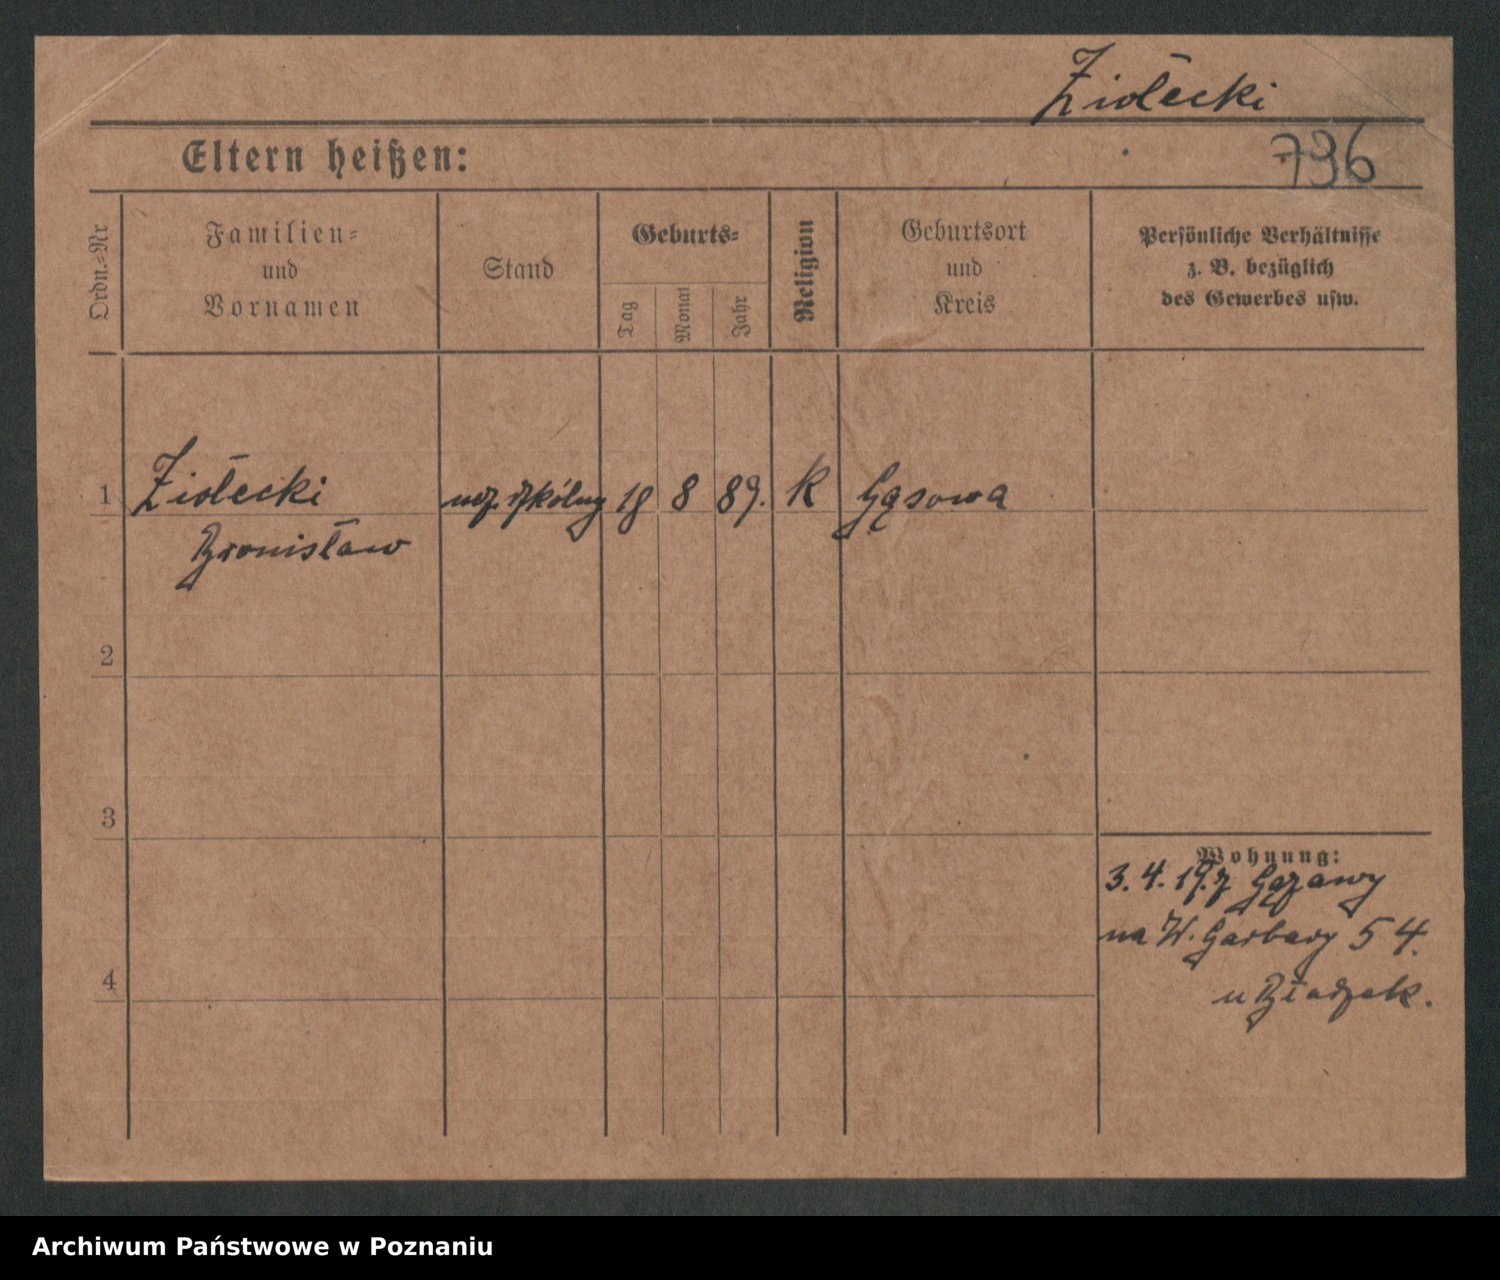 Ziołecki
Eltern heißen:
796
Ordn.=Nr
Familien=
und
Vornamen
Stand
Geburts=
Tag
Monat
Jahr
Religion
Geburtsort
und
Kreis
Persönliche Verhältnisse
z. B. bezüglich
des Gewerbes usw.
1 Ziołecki ucz. szkólny 18 8 89. k Gąsowa
Bronisław
2
3
Wohnung:
3. 4. 19.7 Gązawy
na W. Garbary 54.
4
u
Archiwum Państwowe w Poznaniu